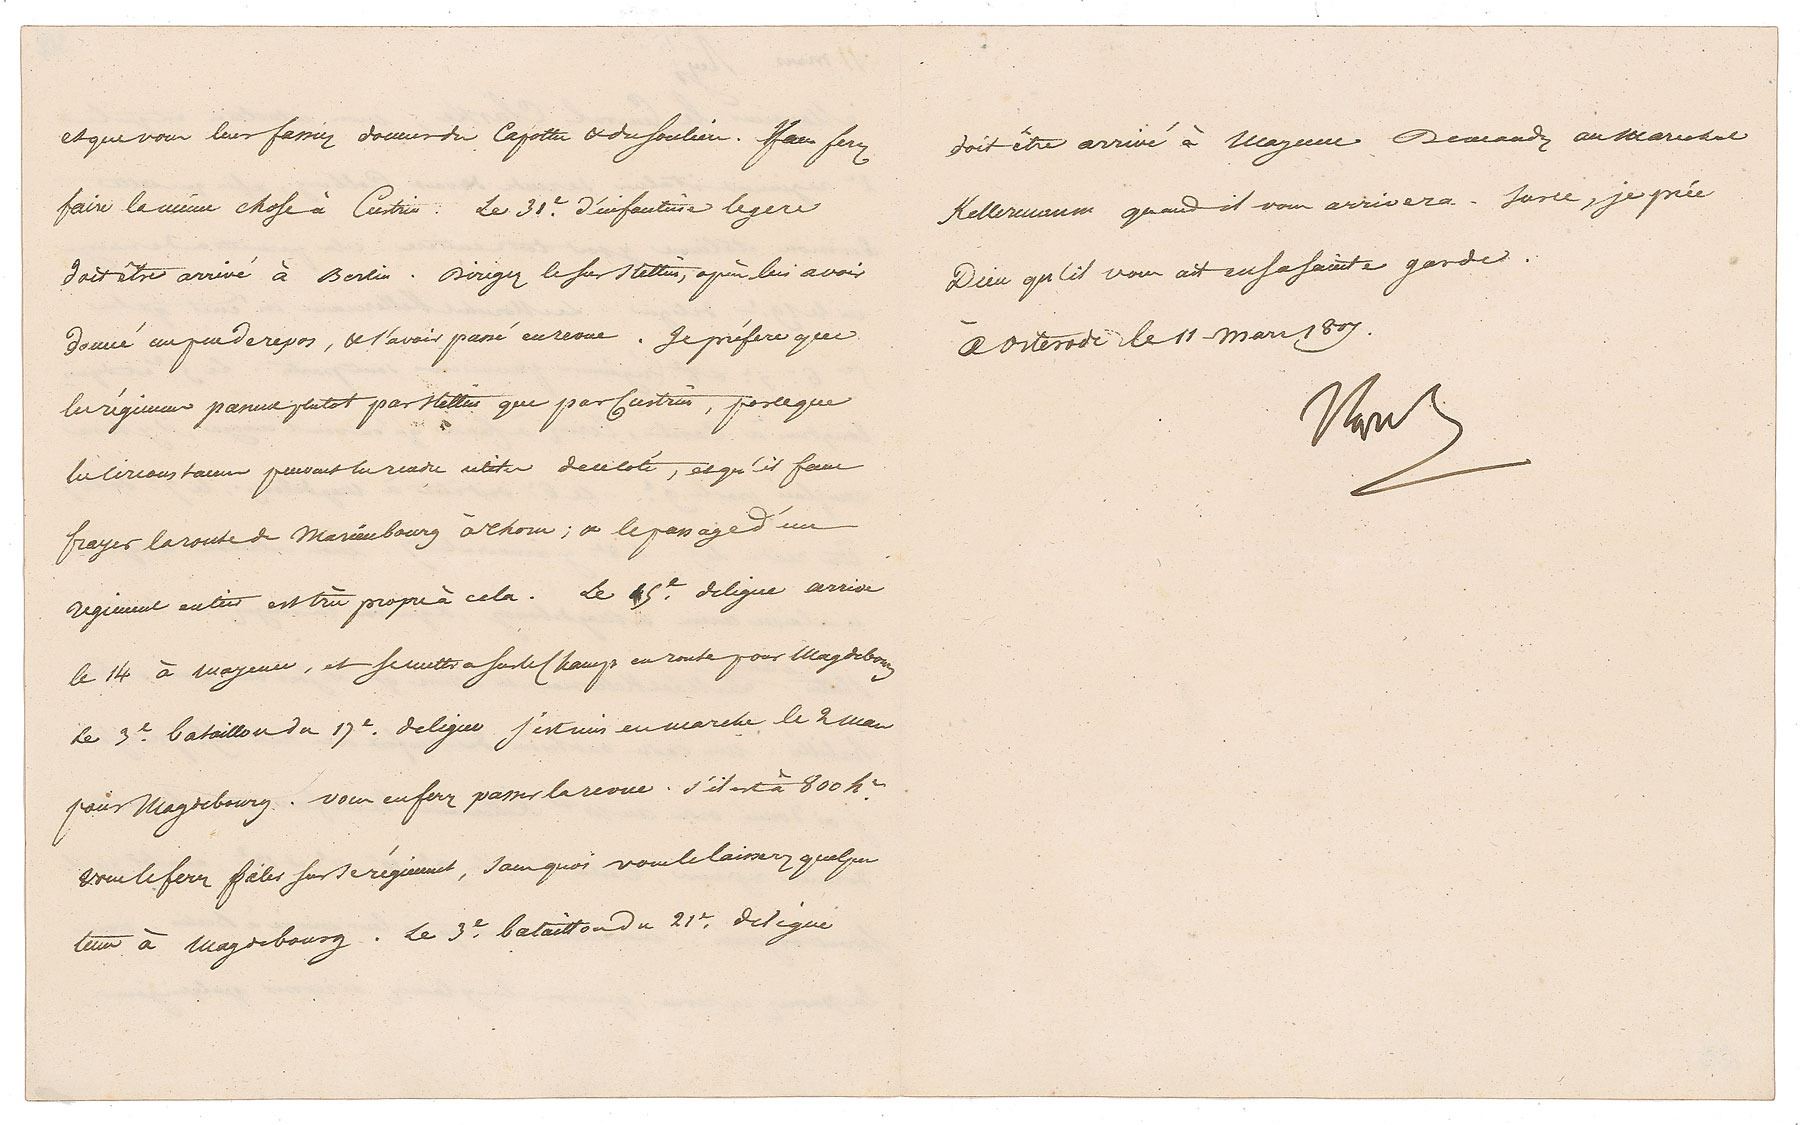 et que vous leur fassiez donner des Capottes & des souliers. Vous ferez
faire la même chose à Custrin. Le 31e. d'infanterie legere
doit être arrivé à Berlin. Dirigez le sur Stettin, après lui avoir
donné un peu de repos, & l'avoir passé en revue. Je préfere que
les régimens passent plutot par Stettin que par Custrin, parceque
les circonstances peuvent les rendre utiles de ce coté, et qu'il faut
frayer la route de Marienbourg à Thorn; & le passage d'un
régiment entier est très propre à cela. Le 15e. de ligne arrive
le 14 à Mayence, et se mettra sur le Champ en route pour Magdebourg
Le 3e. bataillon du 17e. de ligne s'est mis en marche le 2 mars
pour Magdebourg. vous en ferez passer la revue. s'il est à 800 hes.
vous le ferez filer sur le régiment, sans quoi vous le laisserez quelque
tems à Magdebourg. Le 3e. bataillon du 21e. de ligne
doit être arrivé à Mayence Demandez au Marechal
Kellermann quand il vous arrivera. Sur ce, je prie
Dieu qu'il vous ait en sa sainte garde.
à Osterode le 11 Mars 1807.